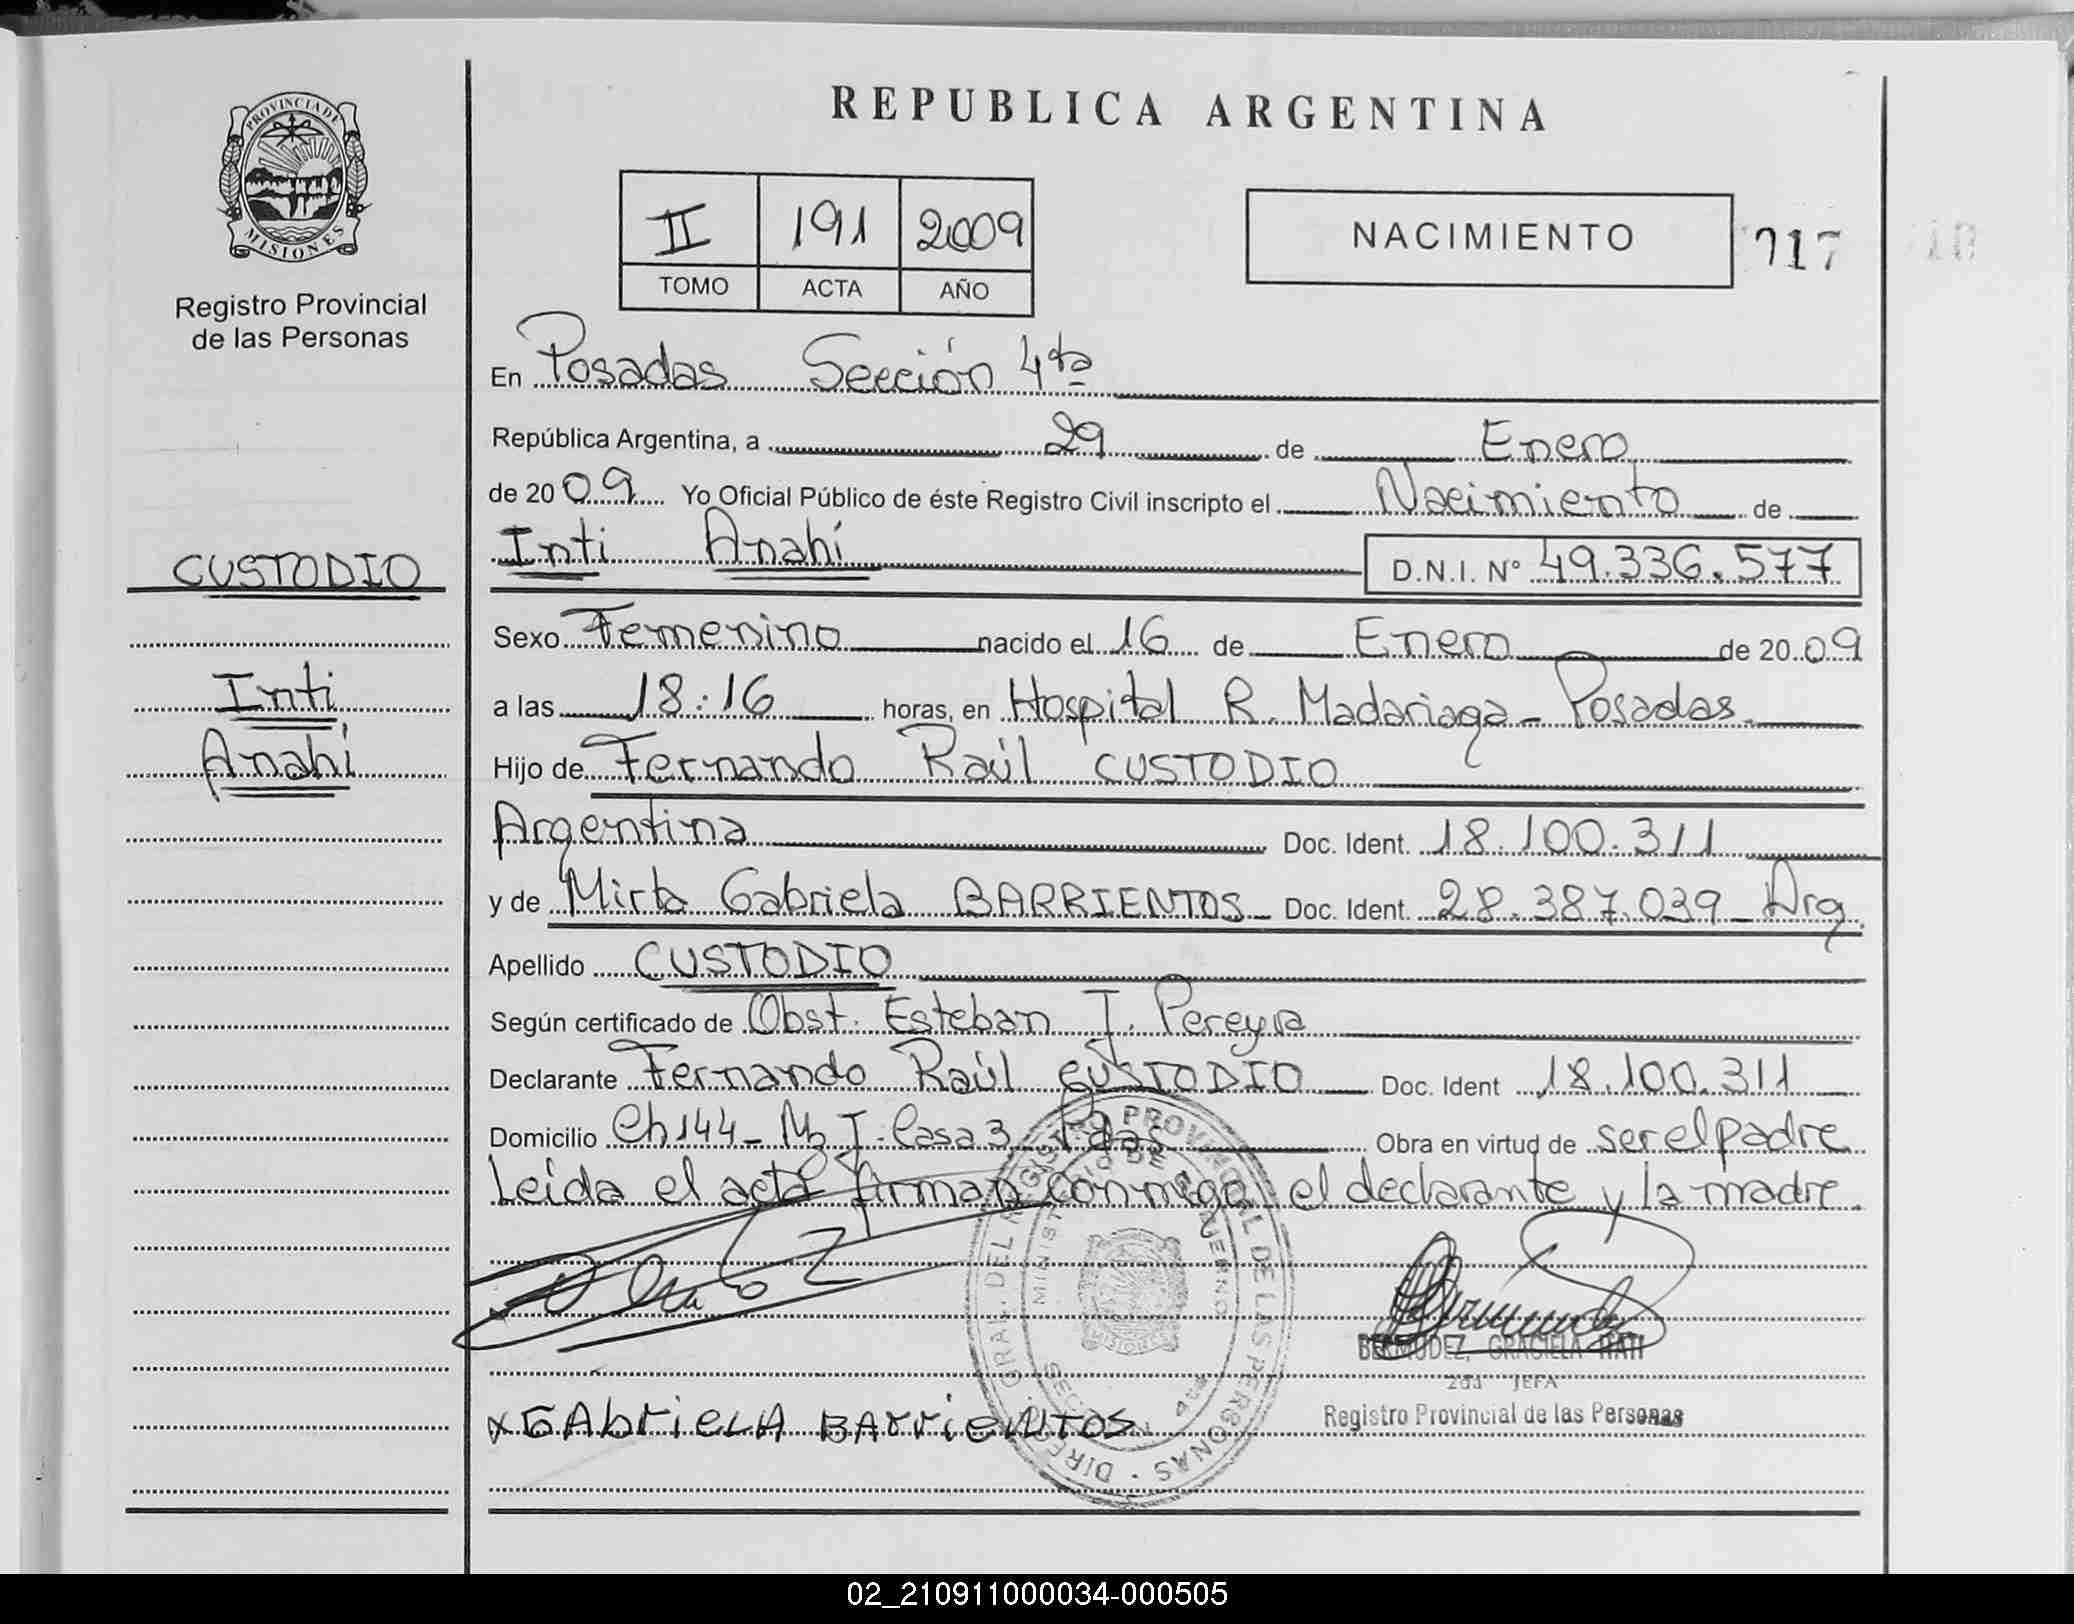 REPUBLICA ARGENTINA
PROVINCIA DE
MISIONES
Registro Provincial
de las Personas
II 191 2009
TOMO ACTA AÑO
NACIMIENTO
017
En Posadas Sección 4ta
República Argentina, a 29 de Enero
de 2009 Yo Oficial Público de éste Registro Civil inscripto el Nacimiento de
Inti Anahí D.N.I. N° 49.336.577
CUSTODIO
Inti
Anahí
Sexo Femenino nacido el 16 de Enero de 2009
a las 18:16 horas, en Hospital R. Madariaga - Posadas.
Hijo de Fernando Raúl CUSTODIO
Argentina Doc. Ident. 18.100.311
y de Mirta Gabriela BARRIENTOS - Doc. Ident. 28.387.039 - Arg.
Apellido CUSTODIO
Según certificado de Obst. Esteban J. Pereyra
Declarante Fernando Raúl CUSTODIO Doc. Ident 18.100.311
Domicilio Ch 144 - Mz J - Casa 3 Pdas Obra en virtud de ser el padre
Leida el acta firman conmigo el declarante y la madre.
DIREC. GRAL. DEL REGISTRO PROVINCIAL DE LAS PERSONAS
MINISTERIO DE GOBIERNO
BERMUDEZ, GRACIELA ITATI
2da JEFA
Registro Provincial de las Personas
x GAbrieLA BArrieNTOS
02_210911000034-000505